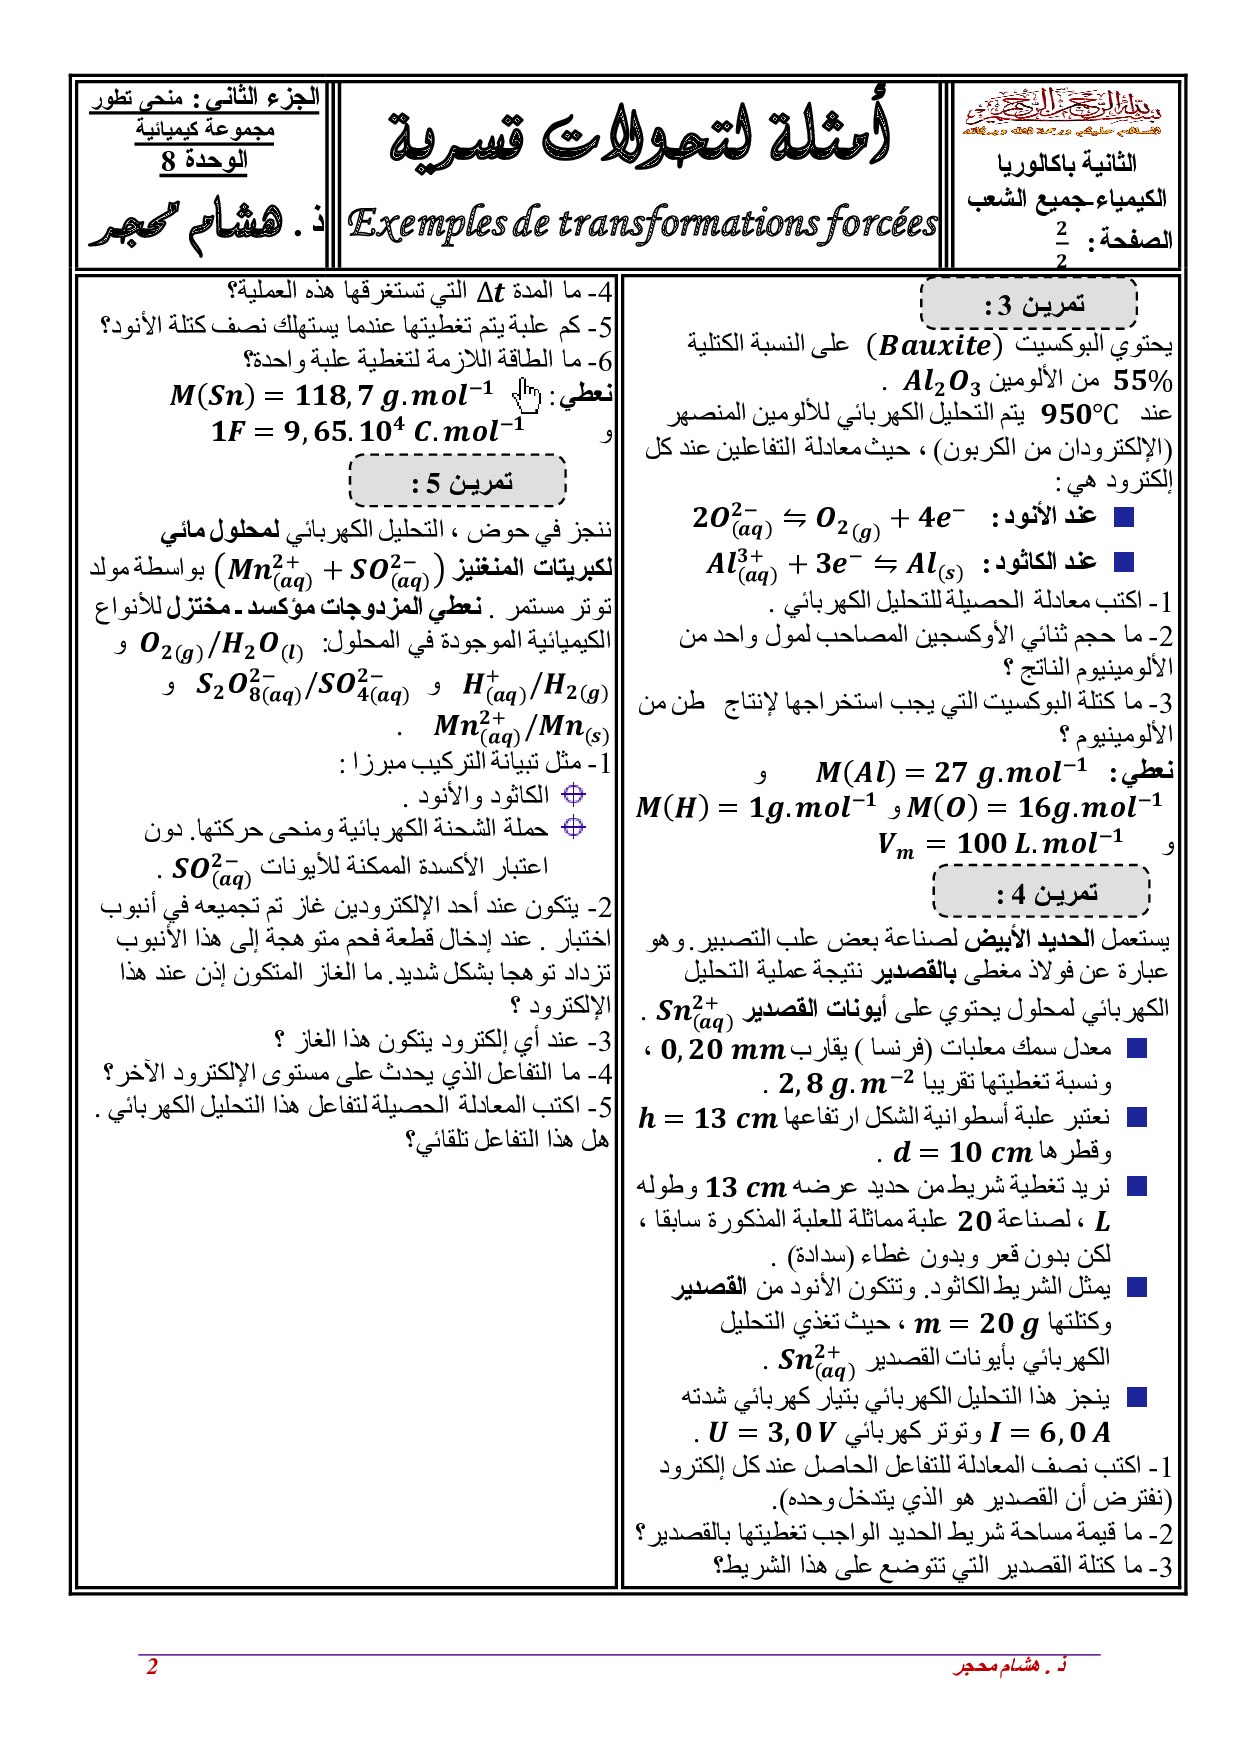 بسم الله الرحمن الرحيم
السلام عليكم ورحمة الله وبركاته
الثانية باكالوريا
الكيمياء-جميع الشعب
الصفحة : 2/2
أمثلة لتحولات قسرية
Exemples de transformations forcées
الجزء الثاني : منحى تطور
مجموعة كيميائية
الوحدة 8
ذ . هشام محجر
تمرين 3 :
يحتوي البوكسيت (Bauxite) على النسبة الكتلية
55% من الألومين Al₂O₃ .
عند 950°C يتم التحليل الكهربائي للألومين المنصهر
(الإلكترودان من الكربون) ، حيث معادلة التفاعلين عند كل
إلكترود هي :
■ عند الأنود : 2O²⁻(aq) ⇋ O₂(g) + 4e⁻
■ عند الكاثود : Al³⁺(aq) + 3e⁻ ⇋ Al(s)
1- اكتب معادلة الحصيلة للتحليل الكهربائي .
2- ما حجم ثنائي الأوكسجين المصاحب لمول واحد من
الألومينيوم الناتج ؟
3- ما كتلة البوكسيت التي يجب استخراجها لإنتاج طن من
الألومينيوم ؟
نعطي : M(Al) = 27 g.mol⁻¹ و
M(O) = 16g.mol⁻¹ و M(H) = 1g.mol⁻¹
و Vₘ = 100 L.mol⁻¹
تمرين 4 :
يستعمل الحديد الأبيض لصناعة بعض علب التصبير. وهو
عبارة عن فولاذ مغطى بالقصدير نتيجة عملية التحليل
الكهربائي لمحلول يحتوي على أيونات القصدير Sn²⁺(aq) .
■ معدل سمك معلبات (فرنسا ) يقارب 0,20 mm ،
ونسبة تغطيتها تقريبا 2,8 g.m⁻² .
■ نعتبر علبة أسطوانية الشكل ارتفاعها h = 13 cm
وقطرها d = 10 cm .
■ نريد تغطية شريط من حديد عرضه 13 cm وطوله
L ، لصناعة 20 علبة مماثلة للعلبة المذكورة سابقا ،
لكن بدون قعر وبدون غطاء (سدادة) .
■ يمثل الشريط الكاثود. وتتكون الأنود من القصدير
وكتلتها m = 20 g ، حيث تغذي التحليل
الكهربائي بأيونات القصدير Sn²⁺(aq) .
■ ينجز هذا التحليل الكهربائي بتيار كهربائي شدته
I = 6,0 A وتوتر كهربائي U = 3,0 V .
1- اكتب نصف المعادلة للتفاعل الحاصل عند كل إلكترود
(نفترض أن القصدير هو الذي يتدخل وحده).
2- ما قيمة مساحة شريط الحديد الواجب تغطيتها بالقصدير؟
3- ما كتلة القصدير التي تتوضع على هذا الشريط؟
4- ما المدة Δt التي تستغرقها هذه العملية؟
5- كم علبة يتم تغطيتها عندما يستهلك نصف كتلة الأنود؟
6- ما الطاقة اللازمة لتغطية علبة واحدة؟
نعطي : M(Sn) = 118,7 g.mol⁻¹
و 1F = 9,65.10⁴ C.mol⁻¹
تمرين 5 :
ننجز في حوض ، التحليل الكهربائي لمحلول مائي
لكبريتات المنغنيز (Mn²⁺(aq) + SO²⁻(aq)) بواسطة مولد
توتر مستمر . نعطي المزدوجات مؤكسد ـ مختزل للأنواع
الكيميائية الموجودة في المحلول: O₂(g)/H₂O(l) و
H⁺(aq)/H₂(g) و S₂O₈²⁻(aq)/SO₄²⁻(aq) و
Mn²⁺(aq)/Mn(s) .
1- مثل تبيانة التركيب مبرزا :
الكاثود والأنود .
حملة الشحنة الكهربائية ومنحى حركتها. دون
اعتبار الأكسدة الممكنة للأيونات SO²⁻(aq) .
2- يتكون عند أحد الإلكترودين غاز تم تجميعه في أنبوب
اختبار . عند إدخال قطعة فحم متوهجة إلى هذا الأنبوب
تزداد توهجا بشكل شديد. ما الغاز المتكون إذن عند هذا
الإلكترود ؟
3- عند أي إلكترود يتكون هذا الغاز ؟
4- ما التفاعل الذي يحدث على مستوى الإلكترود الآخر؟
5- اكتب المعادلة الحصيلة لتفاعل هذا التحليل الكهربائي .
هل هذا التفاعل تلقائي؟
ذ . هشام محجر
2